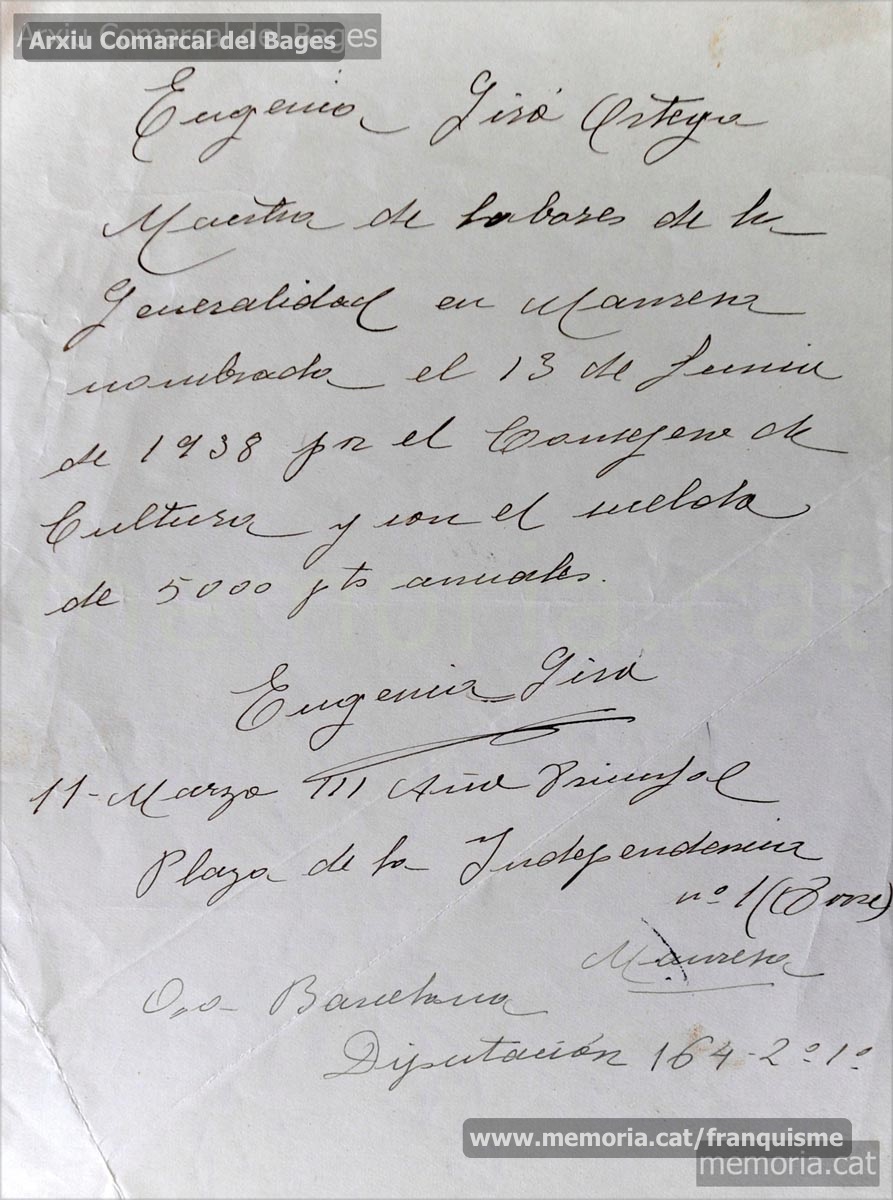 Arxiu Comarcal del Bages
Eugenia Giró Ortega
Maestra de labores de la
Generalidad en Manresa
nombrada el 13 de Junio
de 1938 por el Consegero de
Cultura y con el sueldo
de 5000 pts anuales.
Eugenia Giró
11-Marzo III Año Triunfal
Plaza de la Independencia
nº 1 (
Manresa
O,o- Barcelona
Diputación 164-2º 1º
www.memoria.cat/franquisme
memoria.cat